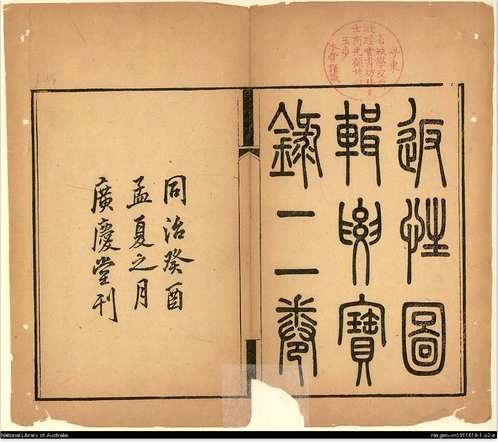 返性圖
輯要寶
錄二卷
同治癸酉
孟夏之月
廣慶堂刊
National Library of Australia
nla.gen-vn1911619-1-s2-e